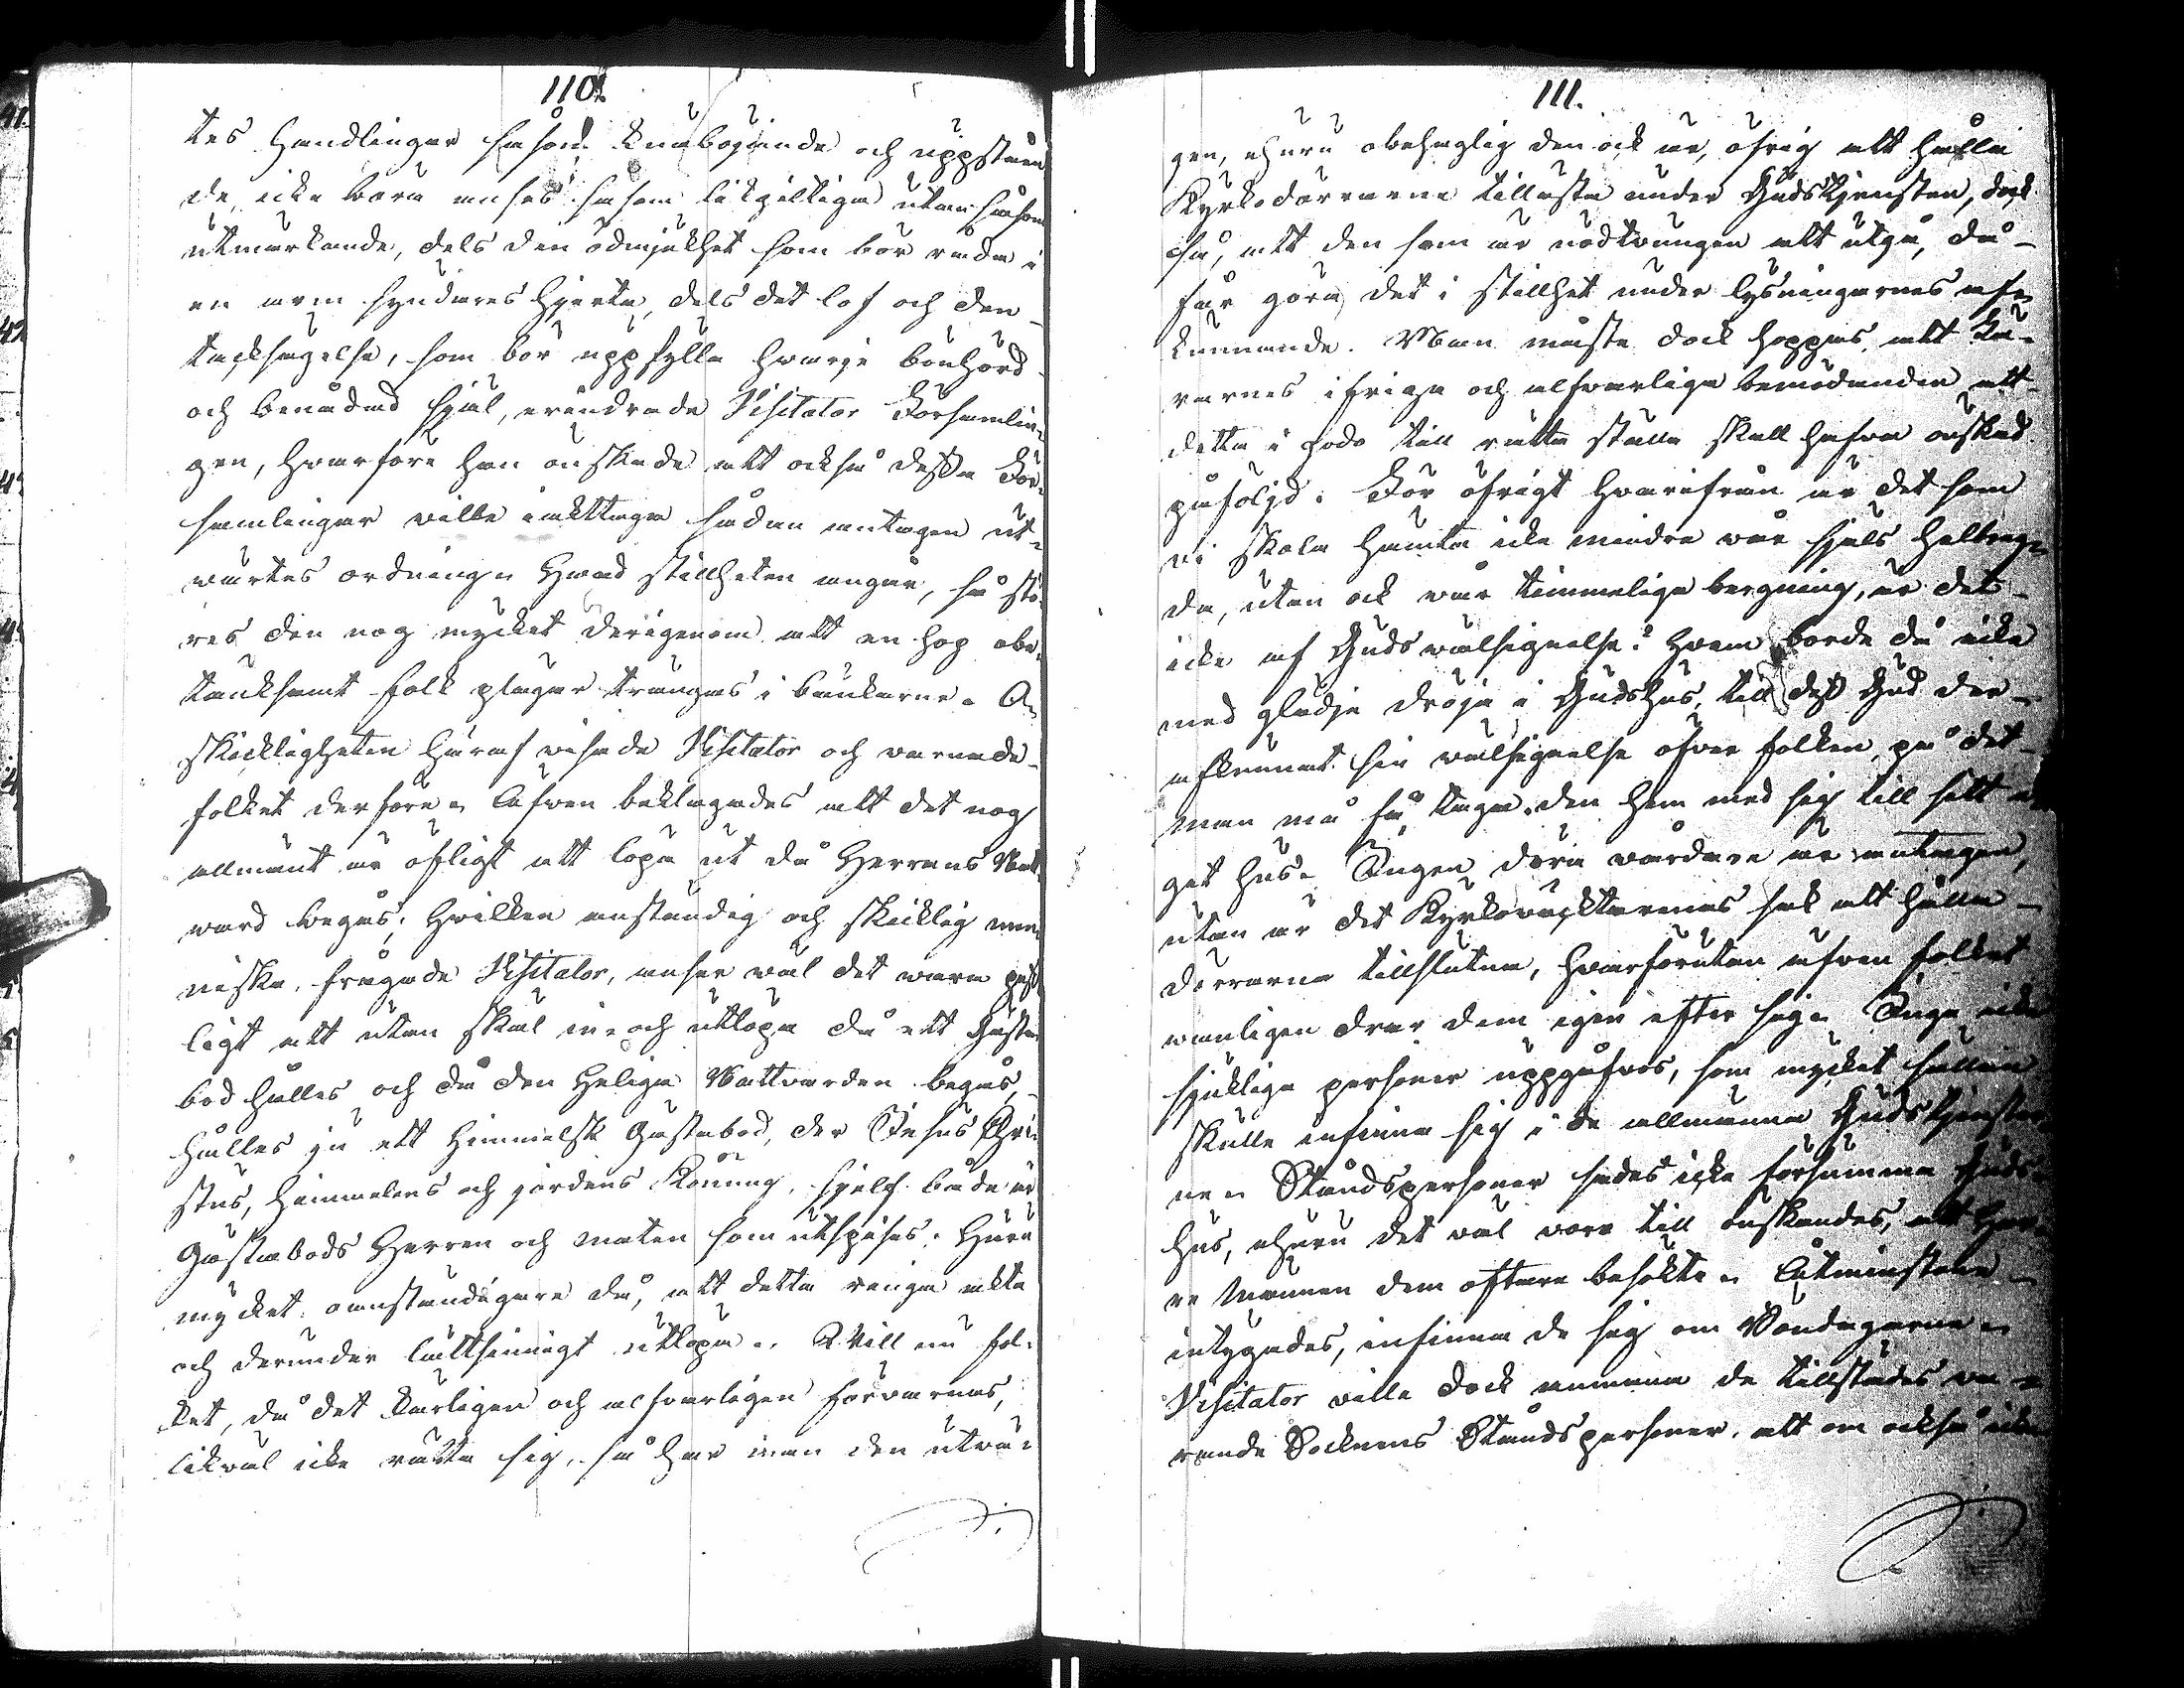 110.
tes Handlingar såsom knäböjande och uppståen
de, icke böra anses såsom likgiltiga utan såsom
utmärkande, dels den ödmjukhet som bör råda i
en arm syndares hjerta, dels det lof och den
tacksägelse, som bör uppfylla hvarje bönhörd
och benådad själ, erindrade Visitator Församlin-
gen, hvarföre han önskade att också dessa För-
samlingar ville iakttaga sådan antagen ut-
wärtes ordning. Hwad stillheten angår, så stö-
res den nog mycket derigenom att en hop obe-
tänksamt folk plägar trängas i bänkarne. O-
skickligheten häraf wisade Visitator och varnade
folket derföre. Äfwen beklagades att det nog
allmänt är öfligt att löpa ut då Herrans Natt-
ward begås; Hvilken anständig och skicklig men-
niska, frågade Visitator, anser wäl det wara pass
ligt att utan skäl in- och utlöpa då ett Gästa
bod hålles och då den Heliga Nattvarden begås,
hålles ju ett Himmelsk Gästabod, der Jesus Chri-
stus, himmelens och jordens Konung, sjelf både är
Gästabods Herren och maten som utspisas. Huru
mycket oanständigare då, att detta ringa akta
och derunder lättsinnigt utlöpa. Vill nu fol-
ket, då det kärligen och alfvarligen förvarnas,
likväl icke rätta sig, så har man den utvä-
111.
gen, ehuru obehaglig den ock är, öfrig att hålla
Kyrkodörrarne tillåsta under Gudstjensten, dock
så, att den som är nödtvungen att utgå, då
får göra det i stillhet under lysningarnes af-
kunnande. Man måste dock hoppas att Lä-
rarnes ifriga och alfvarliga bemödanden att
detta i godo till rätta ställa skall hafva önskad
påföljd. För öfrigt hvarifrån är det som
vi skola hämta icke mindre vår själs helbreg-
da, utan ock vår timmeliga bergning, är det
icke af Guds wälsignelse? Hvem borde då icke
med glädje dröja i Guds hus, till dess Gud der
afkunnat sin wälsignelse öfver folken, på det
man må få taga den hem med sig till sitt e-
get hus. Ingen dörra wårdare är antagen,
utan är det Kyrkovaktarenas sak att hålla
dörrarna tillslutna, hvarförutan äfven folket
vanligen drar dem igen efter sig. Inga icke
sjukliga personer uppgåfvos, som mycket sällan
skulle infinna sig i de allmänna Gudstjenster
ne. Ståndspersoner sades icke försumma Guds
hus, ehuru det väl vore till önskandes, att Her-
re Männen dem oftare besökte. Åtminstone
intygades, infinna de sig om Böndagarne.
Visitator ville dock anmana de tillstädes va-
rande Socknens Ståndspersoner, att om också icke